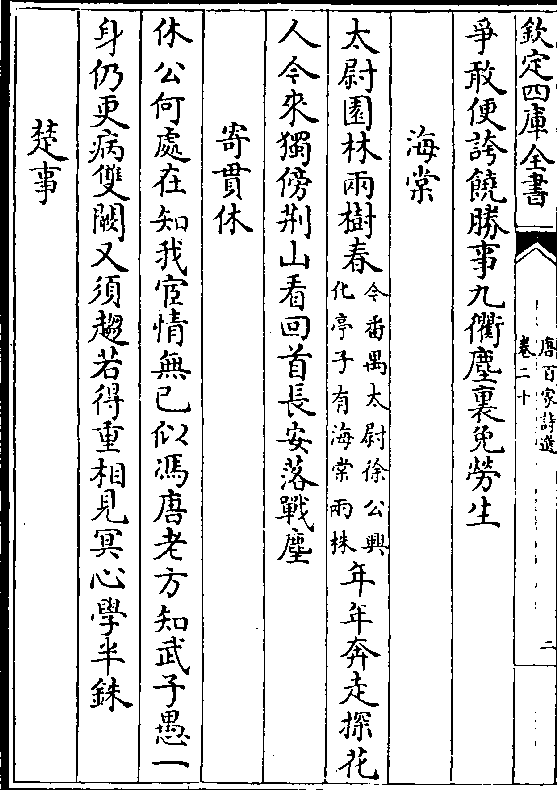 欽定四庫全書
唐百家詩選
卷二十
二
爭敢便誇饒勝事九衢塵裏免勞生
海棠
太尉園林兩樹春
今番禺太尉徐公興
化亭子有海棠兩株
年年奔走探花
人今來獨傍荆山看回首長安落戰塵
寄貫休
休公何處在知我宦情無已似馮唐老方知武子愚一
身仍更病雙闕又須趨若得重相見冥心學半銖
楚事